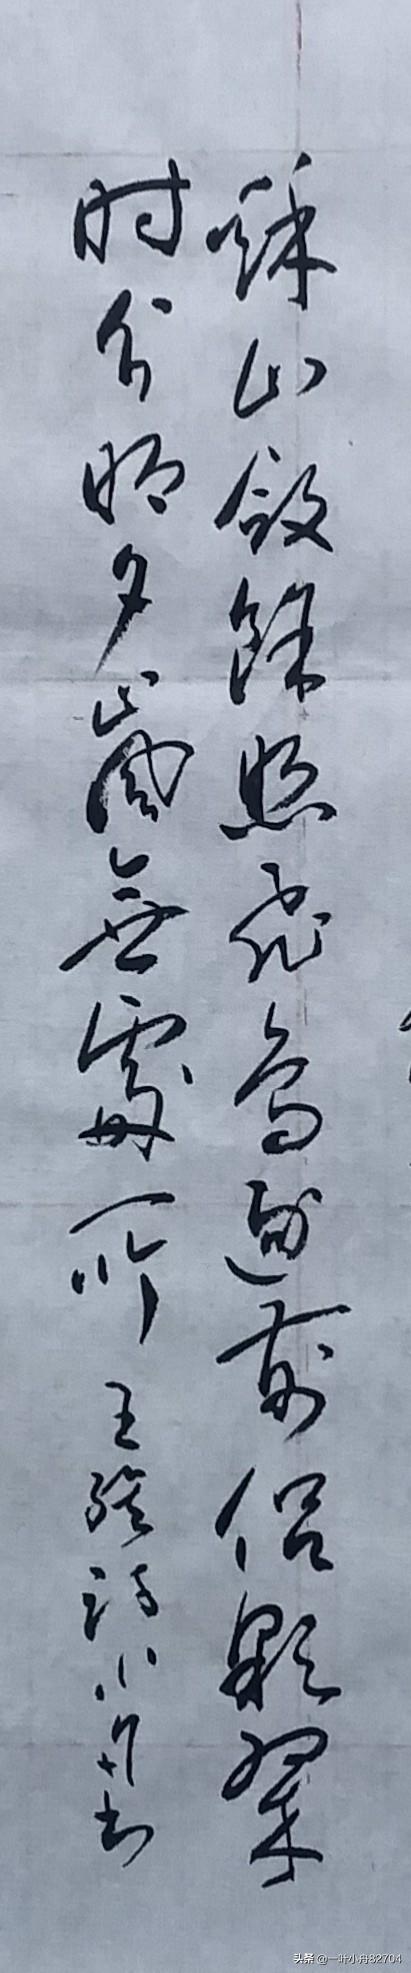 秋山敛餘照飛鸟逐前侣彩翠
时分明夕嵐無處所
王维诗小舟书
头条 @一叶小舟82704